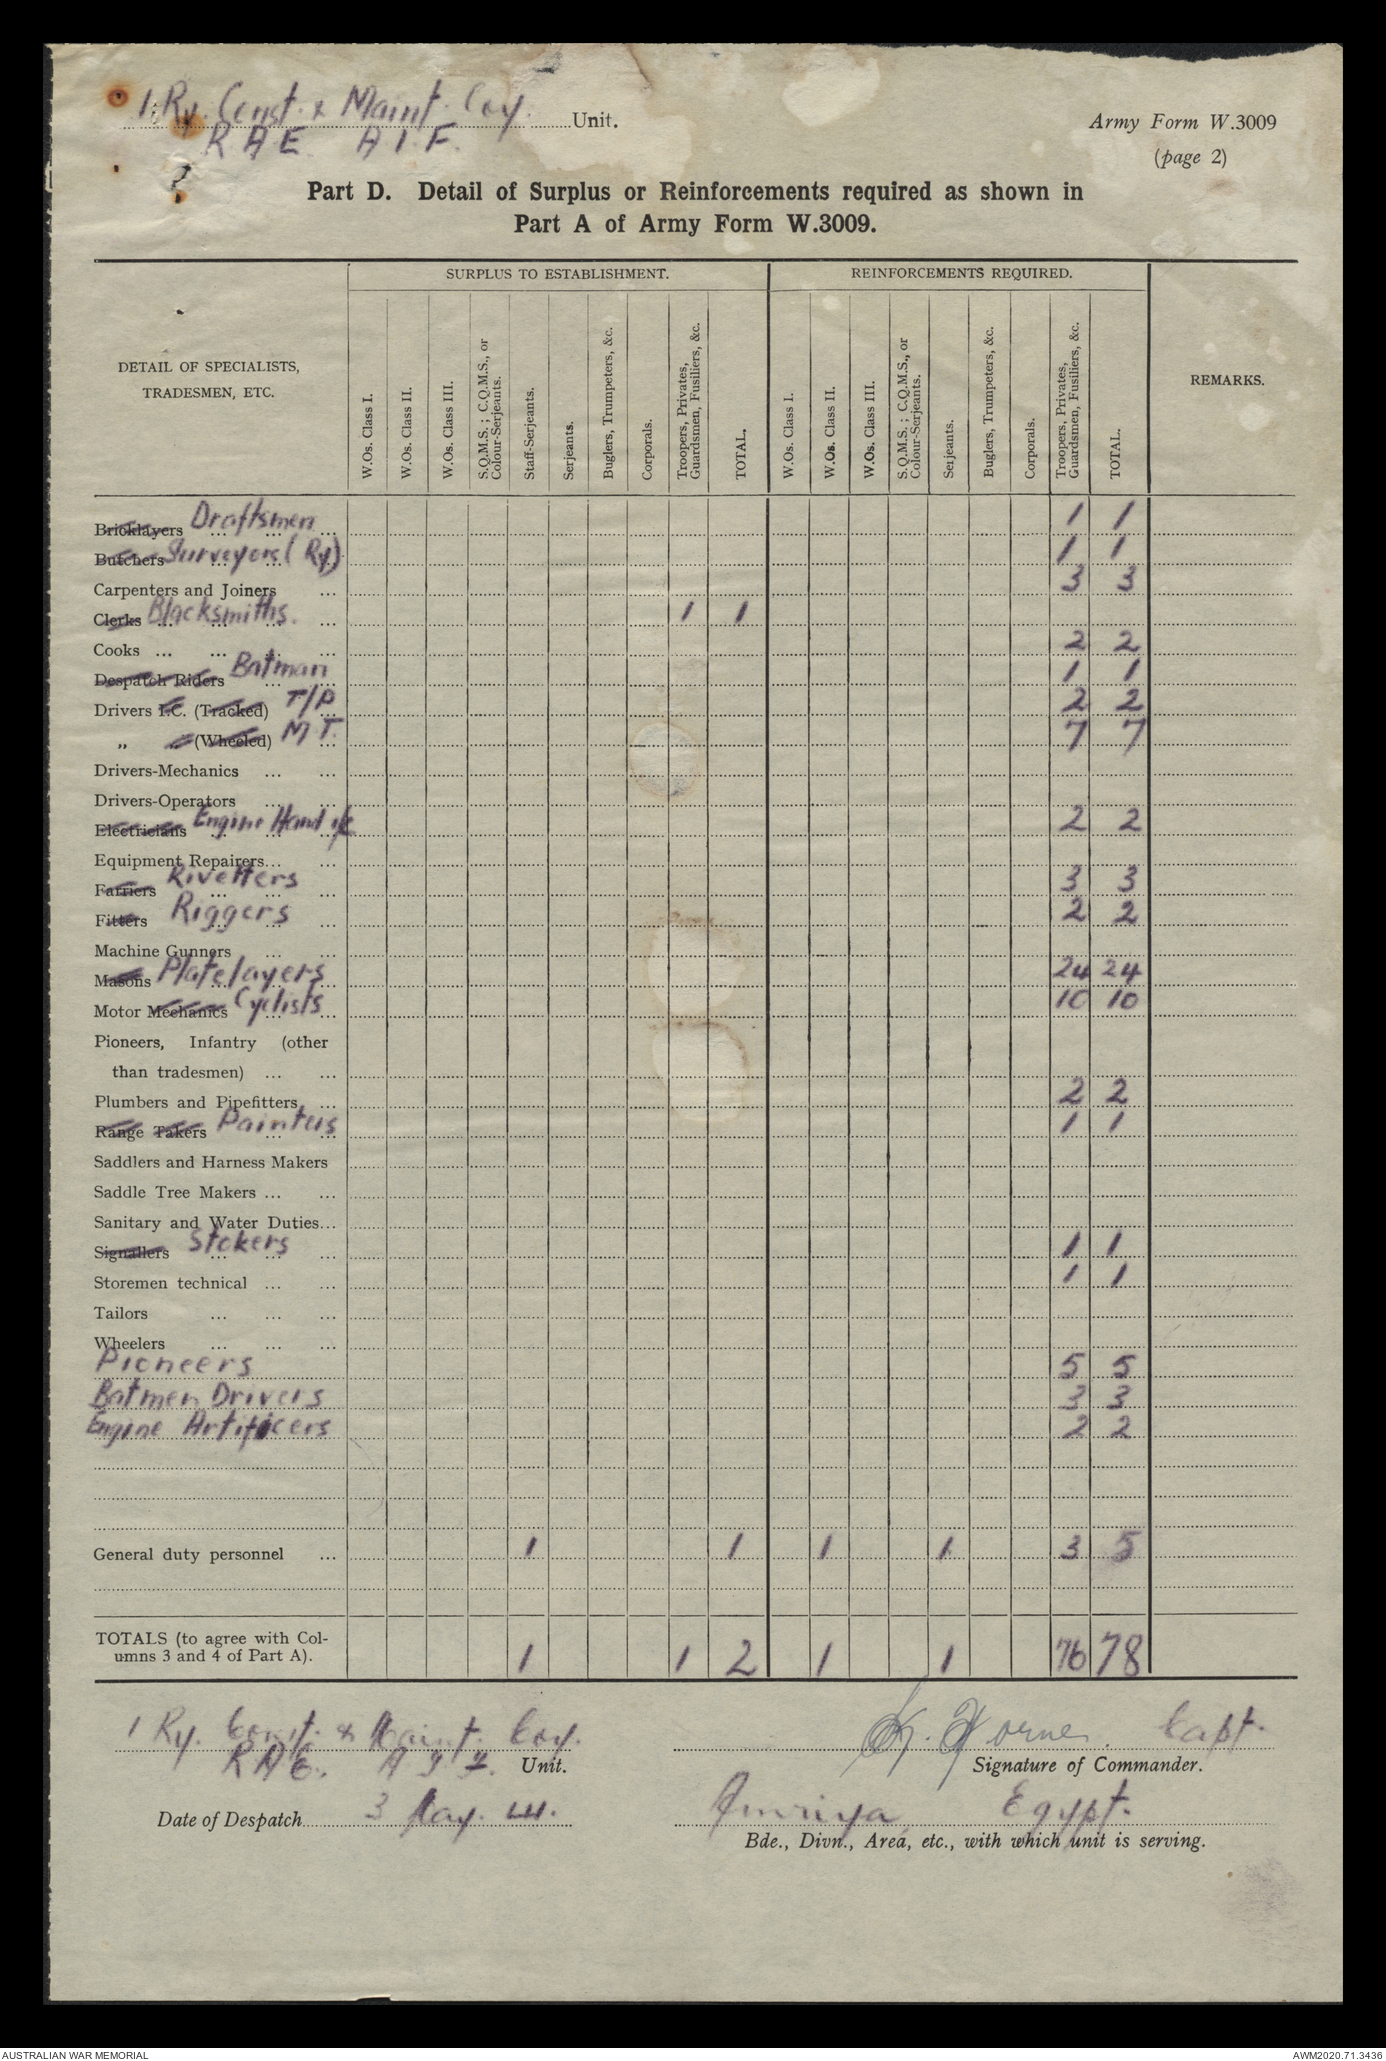 1 Ry. Const. & Maint. Coy. Unit.
R A E A I F.
Army Form W.3009
(page 2)
?
Part D. Detail of Surplus or Reinforcements required as shown in
Part A of Army Form W.3009.
SURPLUS TO ESTABLISHMENT. REINFORCEMENTS REQUIRED.
DETAIL OF SPECIALISTS,
TRADESMEN, ETC.
W.Os. Class I.
W.Os. Class II.
W.Os. Class III.
S.Q.M.S. ; C.Q.M.S., or
Colour-Serjeants.
Staff-Serjeants.
Serjeants.
Buglers, Trumpeters, &c.
Corporals.
Troopers, Privates,
Guardsmen, Fusiliers, &c.
TOTAL.
W.Os. Class I.
W.Os. Class II.
W.Os. Class III.
S.Q.M.S. ; C.Q.M.S., or
Colour-Serjeants.
Serjeants.
Buglers, Trumpeters, &c.
Corporals.
Troopers, Privates,
Guardsmen, Fusiliers, &c.
TOTAL.
REMARKS.
Bricklayers Draftsmen 1 1
Butchers Surveyors (Ry) 1 1
Carpenters and Joiners ... 3 3
Clerks Blacksmiths. 1 1
Cooks ... ... ... 2 2
Despatch Riders Batman 1 1
Drivers I.C. (Tracked) T/P 2 2
„ „ (Wheeled) M T. 7 7
Drivers-Mechanics ... ...
Drivers-Operators ... ...
Electricians Engine Hand i/c 2 2
Equipment Repairers... ...
Farriers Rivetters 3 3
Fitters Riggers 2 2
Machine Gunners ... ...
Masons Platelayers 24 24
Motor Mechanics Cyclists 10 10
Pioneers, Infantry (other
than tradesmen) ... ...
Plumbers and Pipefitters ... 2 2
Range Takers Painters 1 1
Saddlers and Harness Makers
Saddle Tree Makers ... ...
Sanitary and Water Duties...
Signallers Stokers 1 1
Storemen technical ... ... 1 1
Tailors ... ... ...
Wheelers ... ... ...
Pioneers 5 5
Batmen Drivers 3 3
Engine Artificers 2 2
General duty personnel ... 1 1 1 1 3 5
TOTALS (to agree with Col-
umns 3 and 4 of Part A). 1 1 2 1 1 76 78
1 Ry. Const. & Maint. Coy. Capt.
R A E. A I F. Unit. Signature of Commander.
Date of Despatch 3 May. 41. Amriya, Egypt.
Bde., Divn., Area, etc., with which unit is serving.
AUSTRALIAN WAR MEMORIAL AWM2020.71.3436